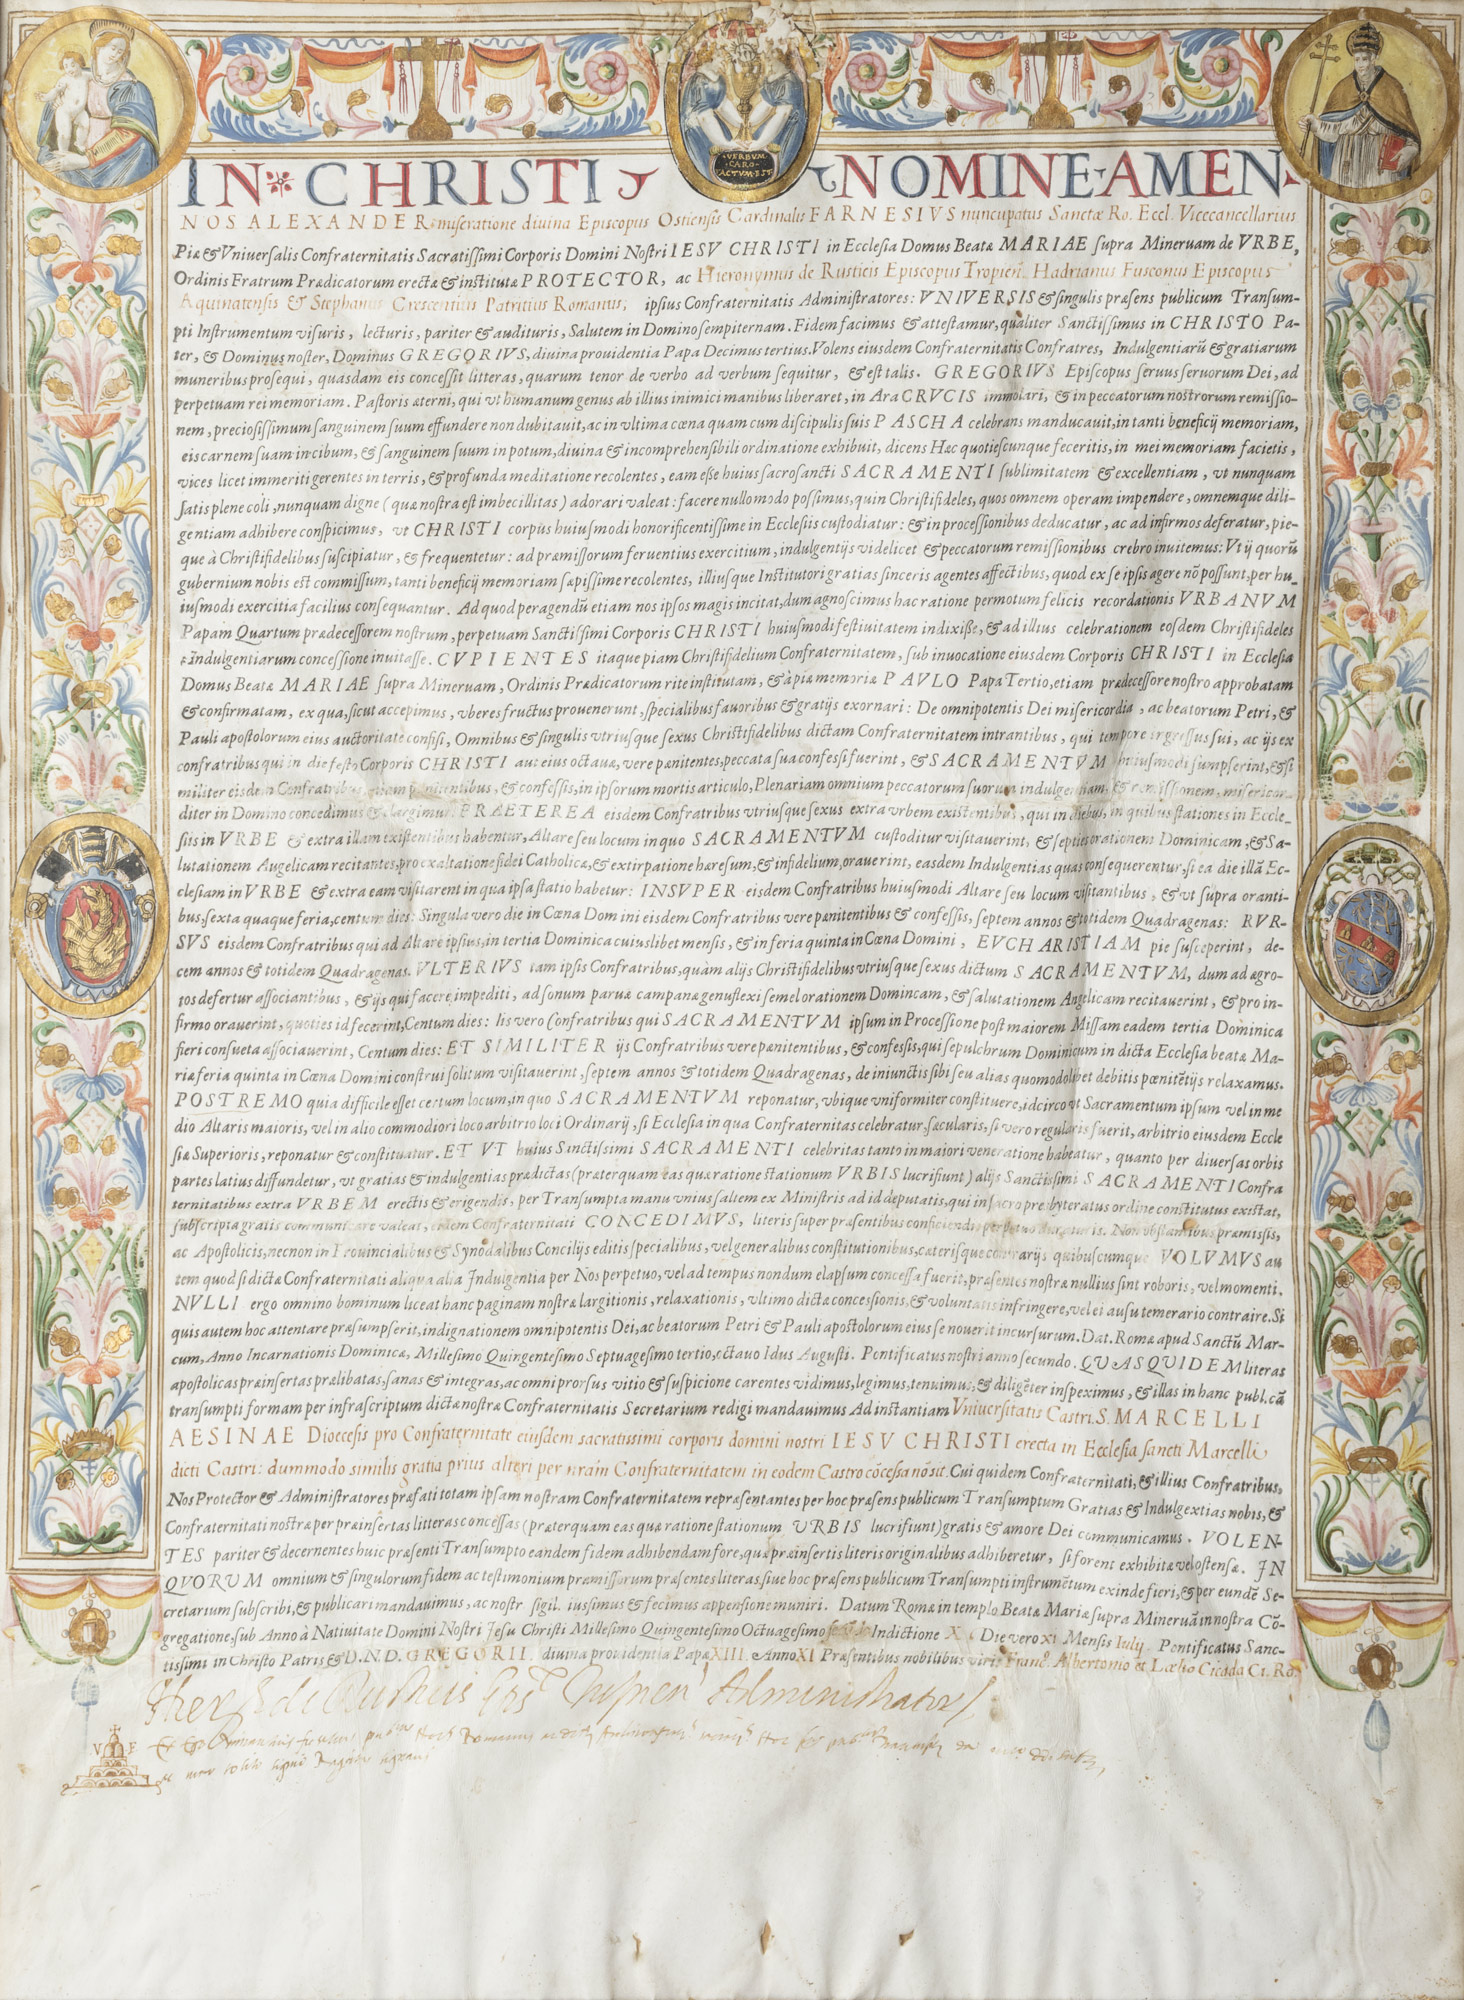 VERBVM
CARO
FACTVM·EST
IN CHRISTI NOMINE·AMEN
NOS ALEXANDER miseratione diuina Episcopus Ostiensis Cardinalis FARNESIVS nuncupatus Sanctæ Ro. Eccl. Vicecancellarius
Piæ & Vniuersalis Confraternitatis Sacratissimi Corporis Domini Nostri IESV CHRISTI in Ecclesia Domus Beatæ MARIAE supra Mineruam de VRBE,
Ordinis Fratrum Prædicatorum erectæ & institutæ PROTECTOR, ac Hieronymus de Rusticis Episcopus Tropien. Hadrianus Fusconus Episcopus
Aquinatensis & Stephanus Crescentius Patritius Romanus, ipsius Confraternitatis Administratores: VNIVERSIS & singulis præsens publicum Transum-
pti Instrumentum visuris, lecturis, pariter & audituris, Salutem in Domino sempiternam. Fidem facimus & attestamur, qualiter Sanctissimus in CHRISTO Pa-
ter, & Dominus noster, Dominus GREGORIVS, diuina prouidentia Papa Decimus tertius. Volens eiusdem Confraternitatis Confratres, Indulgentiarũ & gratiarum
muneribus prosequi, quasdam eis concessit litteras, quarum tenor de verbo ad verbum sequitur, & est talis. GREGORIVS Episcopus seruus seruorum Dei, ad
perpetuam rei memoriam. Pastoris æterni, qui vt humanum genus ab illius inimici manibus liberaret, in Ara CRVCIS immolari, & in peccatorum nostrorum remissio-
nem, preciosissimum sanguinem suum effundere non dubitauit, ac in vltima cœna quam cum discipulis suis PASCHA celebrans manducauit, in tanti beneficij memoriam,
eis carnem suam in cibum, & sanguinem suum in potum, diuina & incomprehensibili ordinatione exhibuit, dicens Hæc quotiescunque feceritis, in mei memoriam facietis,
vices licet immeriti gerentes in terris, & profunda meditatione recolentes, eam esse huius sacrosancti SACRAMENTI sublimitatem & excellentiam, vt nunquam
satis plene coli, nunquam digne (quæ nostra est imbecillitas) adorari valeat: facere nullo modo possimus, quin Christifideles, quos omnem operam impendere, omnemque dili-
gentiam adhibere conspicimus, vt CHRISTI corpus huiusmodi honorificentissime in Ecclesiis custodiatur: & in processionibus deducatur, ac ad infirmos deferatur, pie-
que à Christifidelibus suscipiatur, & frequentetur: ad præmissorum feruentius exercitium, indulgentijs videlicet & peccatorum remissionibus crebro inuitemus: Vt ij quorũ
gubernium nobis est commissum, tanti beneficij memoriam sæpissime recolentes, illiusque Institutori gratias sinceris agentes affectibus, quod ex se ipsis agere nõ possunt, per hu-
iusmodi exercitia facilius consequantur. Ad quod peragendũ etiam nos ipsos magis incitat, dum agnoscimus hac ratione permotum felicis recordationis VRBANVM
Papam Quartum prædecessorem nostrum, perpetuam Sanctissimi Corporis CHRISTI huiusmodi festiuitatem indixisse, & ad illius celebrationem eosdem Christifideles
Indulgentiarum concessione inuitasse. CVPIENTES itaque piam Christifidelium Confraternitatem, sub inuocatione eiusdem Corporis CHRISTI in Ecclesia
Domus Beatæ MARIAE supra Mineruam, Ordinis Prædicatorum rite institutam, & à piæ memoriæ PAVLO Papa Tertio, etiam prædecessore nostro approbatam
& confirmatam, ex qua, sicut accepimus, vberes fructus prouenerunt, specialibus fauoribus & gratijs exornari: De omnipotentis Dei misericordia, ac beatorum Petri, &
Pauli apostolorum eius auctoritate confisi, Omnibus & singulis vtriusque sexus Christifidelibus dictam Confraternitatem intrantibus, qui tempore ingressus sui, ac ijs ex
confratribus qui in die festo Corporis CHRISTI aut eius octaua, vere pœnitentes, peccata sua confessi fuerint, & SACRAMENTVM huiusmodi sumpserint, & si
militer eisdem Confratribus, etiam pœnitentibus, & confessis, in ipsorum mortis articulo, Plenariam omnium peccatorum suorum indulgentiam, & remissionem, misericor-
diter in Domino concedimus & elargimur. PRAETEREA eisdem Confratribus vtriusque sexus extra vrbem existentibus, qui in diebus, in quibus stationes in Eccle-
siis in VRBE & extra illam existentibus habentur, Altare seu locum in quo SACRAMENTVM custoditur visitauerint, & septies orationem Dominicam, & Sa-
lutationem Angelicam recitantes, pro exaltatione fidei Catholicæ, & extirpatione hæresum, & infidelium, orauerint, easdem Indulgentias quas consequerentur, si ea die illã Ec-
clesiam in VRBE & extra eam visitarent in qua ipsa statio habetur: INSVPER eisdem Confratribus huiusmodi Altare seu locum visitantibus, & vt supra oranti-
bus, sexta quaque feria, centum dies: Singula vero die in Cœna Domini eisdem Confratribus vere pœnitentibus & confessis, septem annos & totidem Quadragenas: RVR-
SVS eisdem Confratribus qui ad Altare ipsius, in tertia Dominica cuiuslibet mensis, & in feria quinta in Cœna Domini, EVCHARISTIAM pie susceperint, de-
cem annos & totidem Quadragenas. VLTERIVS tam ipsis Confratribus, quàm alijs Christifidelibus vtriusque sexus dictum SACRAMENTVM, dum ad ægro-
tos defertur associantibus, & ijs qui facere impediti, ad sonum paruæ campanæ genuflexi semel orationem Domincam, & salutationem Angelicam recitauerint, & pro in-
firmo orauerint, quoties id fecerint, Centum dies: Iis vero Confratribus qui SACRAMENTVM ipsum in Processione post maiorem Missam eadem tertia Dominica
fieri consueta associauerint, Centum dies: ET SIMILITER ijs Confratribus vere pœnitentibus, & confessis, qui sepulchrum Dominicum in dicta Ecclesia beatæ Ma-
riæ feria quinta in Cœna Domini construi solitum visitauerint, septem annos & totidem Quadragenas, de iniunctis sibi seu alias quomodolibet debitis pœnitẽtijs relaxamus.
POSTREMO quia difficile esset certum locum, in quo SACRAMENTVM reponatur, vbique vniformiter constituere, idcirco vt Sacramentum ipsum vel in me
dio Altaris maioris, vel in alio commodiori loco arbitrio loci Ordinarij, si Ecclesia in qua Confraternitas celebratur, sæcularis, si vero regularis fuerit, arbitrio eiusdem Eccle
siæ Superioris, reponatur & constituatur. ET VT huius Sanctissimi SACRAMENTI celebritas tanto in maiori veneratione habeatur, quanto per diuersas orbis
partes latius diffundetur, vt gratias & indulgentias prædictas (præterquam eas quæ ratione stationum VRBIS lucrifiunt) alijs Sanctissimi SACRAMENTI Confra
ternitatibus extra VRBEM erectis & erigendis, per Transumpta manu vnius saltem ex Ministris ad id deputatis, qui in sacro presbyteratus ordine constitutus existat,
subscripta gratis communicare valeat, eidem Confraternitati CONCEDIMVS, literis super præsentibus conficiendis perpetuo duraturis. Non obstantibus præmissis,
ac Apostolicis, necnon in Prouincialibus & Synodalibus Concilijs editis specialibus, vel generalibus constitutionibus, cæterisque contrarijs quibuscumque VOLVMVS au
tem quod si dictæ Confraternitati aliqua alia Indulgentia per Nos perpetuo, vel ad tempus nondum elapsum concessa fuerit, præsentes nostræ nullius sint roboris, vel momenti.
NVLLI ergo omnino hominum liceat hanc paginam nostræ largitionis, relaxationis, vltimo dictæ concessionis, & voluntatis infringere, vel ei ausu temerario contraire. Si
quis autem hoc attentare præsumpserit, indignationem omnipotentis Dei, ac beatorum Petri & Pauli apostolorum eius se nouerit incursurum. Dat. Romæ apud Sanctũ Mar-
cum, Anno Incarnationis Dominicæ, Millesimo Quingentesimo Septuagesimo tertio, octauo Idus Augusti. Pontificatus nostri anno secundo. QVAS QVIDEM literas
apostolicas præinsertas prælibatas, sanas & integras, ac omni prorsus vitio & suspicione carentes vidimus, legimus, tenuimus, & diligẽter inspeximus, & illas in hanc publicã
transumpti formam per infrascriptum dictæ nostræ Confraternitatis Secretarium redigi mandauimus Ad instantiam Vniuersitatis Castri. S. MARCELLI
AESINAE Dioecesis pro Confraternitate eiusdem sacratissimi corporis domini nostri IESV CHRISTI erecta in Ecclesia sancti Marcelli
dicti Castri: dummodo similis gratia prius alteri per nram Confraternitatem in eodem Castro cõcessa nõ sit. Cui quidem Confraternitati, & illius Confratribus,
Nos Protector & Administratores præfati totam ipsam nostram Confraternitatem repræsentantes per hoc præsens publicum Transumptum Gratias & Indulgextias nobis, &
Confraternitati nostræ per præinsertas litteras concessas (præterquam eas quæ ratione stationum VRBIS lucrifiunt) gratis & amore Dei communicamus. VOLEN-
TES pariter & decernentes huic præsenti Transumpto eandem fidem adhibendam fore, quæ præinsertis literis originalibus adhiberetur, si forent exhibitæ vel ostensæ. IN
QVORVM omnium & singulorum fidem ac testimonium præmissorum præsentes literas, siue hoc præsens publicum Transumpti instrumẽtum exinde fieri, & per eundẽ Se-
cretarium subscribi, & publicari mandauimus, ac nostr sigil. iussimus & fecimus appensione muniri. Datum Romæ in templo Beatæ Mariæ supra Mineruã in nostra Cõ-
gregatione, sub Anno à Natiuitate Domini Nostri Jesu Christi Millesimo Quingentesimo Octuagesimo Indictione Die vero XI Mensis Iulij Pontificatus Sanc-
tissimi in Christo Patris & D. N. D. GREGORII. diuina prouidentia Papæ XIII. Anno XI Præsentibus nobilibus viris Franc. Albertonio et Lælio Cicada Ci. Ro.
Administrator
V F